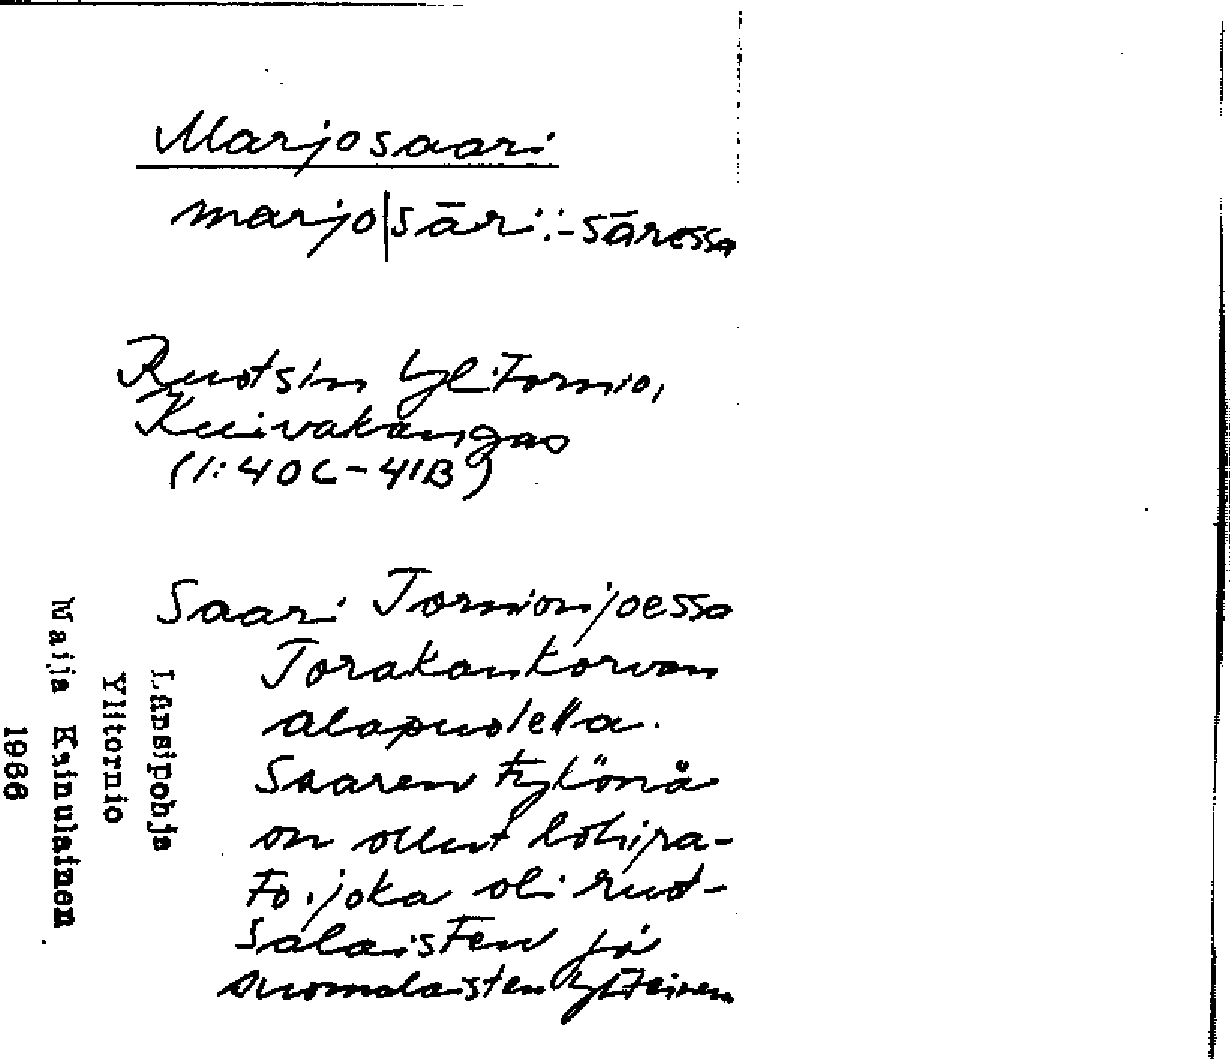 Marjosaari
marjo|sāri: -sāressa
Ruotsin Ylitornio,
Kuivakangas
(1:40C-41B)
Saari Tornionjoessa
Torakankorvan
alapuolella.
Saaren
on ollut lohipa-
to, joka oli ruot-
salaisten ja
suomalaisten yhteinen
Länsipohja
Ylitornio
Maija Kainulainen
1966